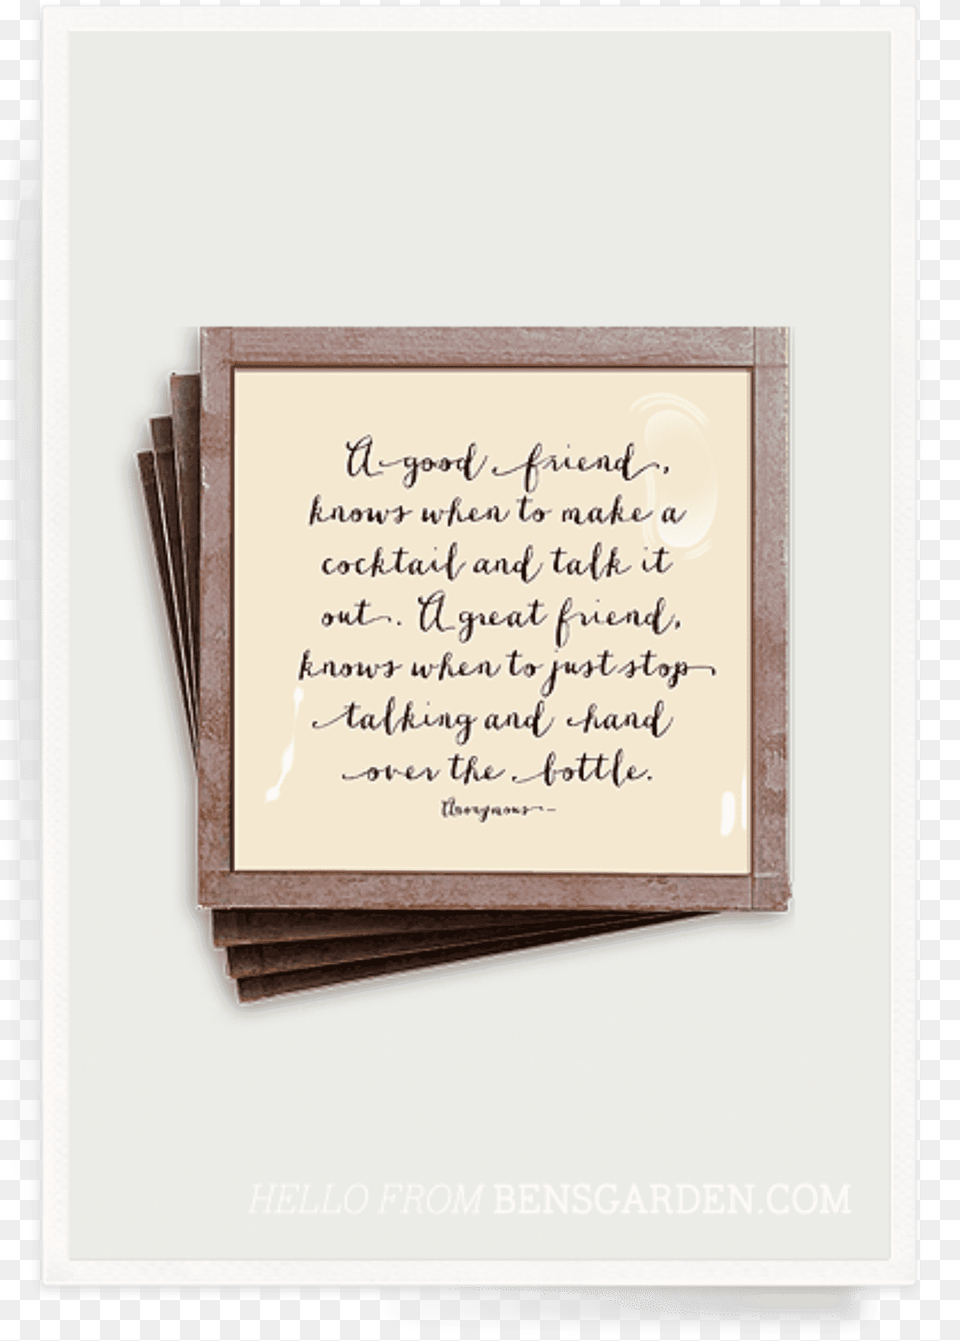 A good friend,
knows when to make a
cocktail and talk it
out. A great friend,
knows when to just stop
talking and hand
over the bottle.
Anonymous
HELLO FROM BENSGARDEN.COM